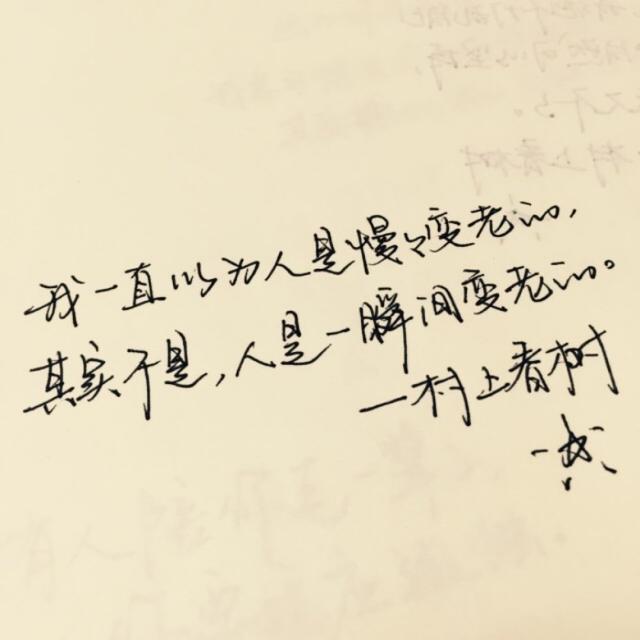 我一直以为人是慢々变老的，
其实不是，人是一瞬间变老的。
—村上春树